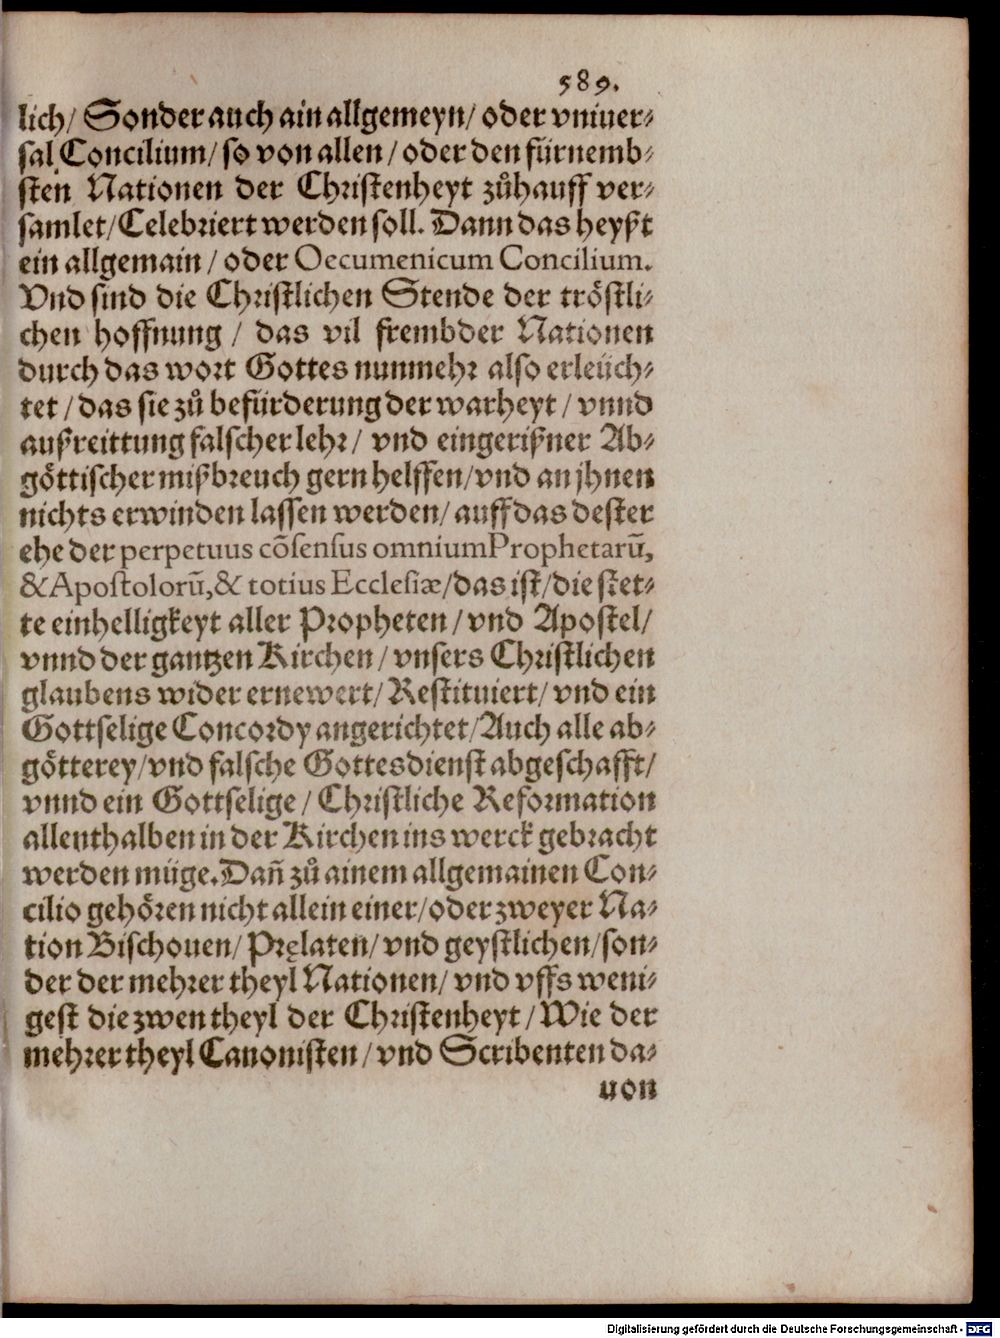 589.
lich/ Sonder auch ain allgemeyn/ oder vniuer⸗
sal Concilium/ so von allen / oder den fürnemb⸗
sten Nationen der Christenheyt zůhauff ver⸗
samlet/ Celebriert werden soll. Dann das heyßt
ein allgemain / oder Oecumenicum Concilium.
Vnd sind die Christlichen Stende der tröstli⸗
chen hoffnung / das vil frembder Nationen
durch das wort Gottes nunmehr also erleüch⸗
tet / das sie zů befürderung der warheyt / vnnd
außreittung falscher lehr / vnd eingerißner Ab⸗
göttischer mißbreuch gern helffen/vnd an jhnen
nichts erwinden lassen werden/ auff das dester
ehe der perpetuus cõsensus omnium Prophetarũ,
& Apostolorũ,& totius Ecclesiæ/das ist/die stet⸗
te einhelligkeyt aller Propheten / vnd Apostel/
vnnd der gantzen Kirchen / vnsers Christlichen
glaubens wider ernewert/ Restituiert/ vnd ein
Gottselige Concordy angerichtet/Auch alle ab⸗
götterey/vnd falsche Gottesdienst abgeschafft/
vnnd ein Gottselige / Christliche Reformation
allenthalben in der Kirchen ins werck gebracht
werden müge. Dañ zů ainem allgemainen Con⸗
cilio gehören nicht allein einer/oder zweyer Na⸗
tion Bischouen/ Pręlaten/ vnd geystlichen/son⸗
der der mehrer theyl Nationen/ vnd vffs weni⸗
gest die zwen theyl der Christenheyt / Wie der
mehrer theyl Canonisten / vnd Scribenten da⸗
uon
Digitalisierung gefördert durch die Deutsche Forschungsgemeinschaft - DFG